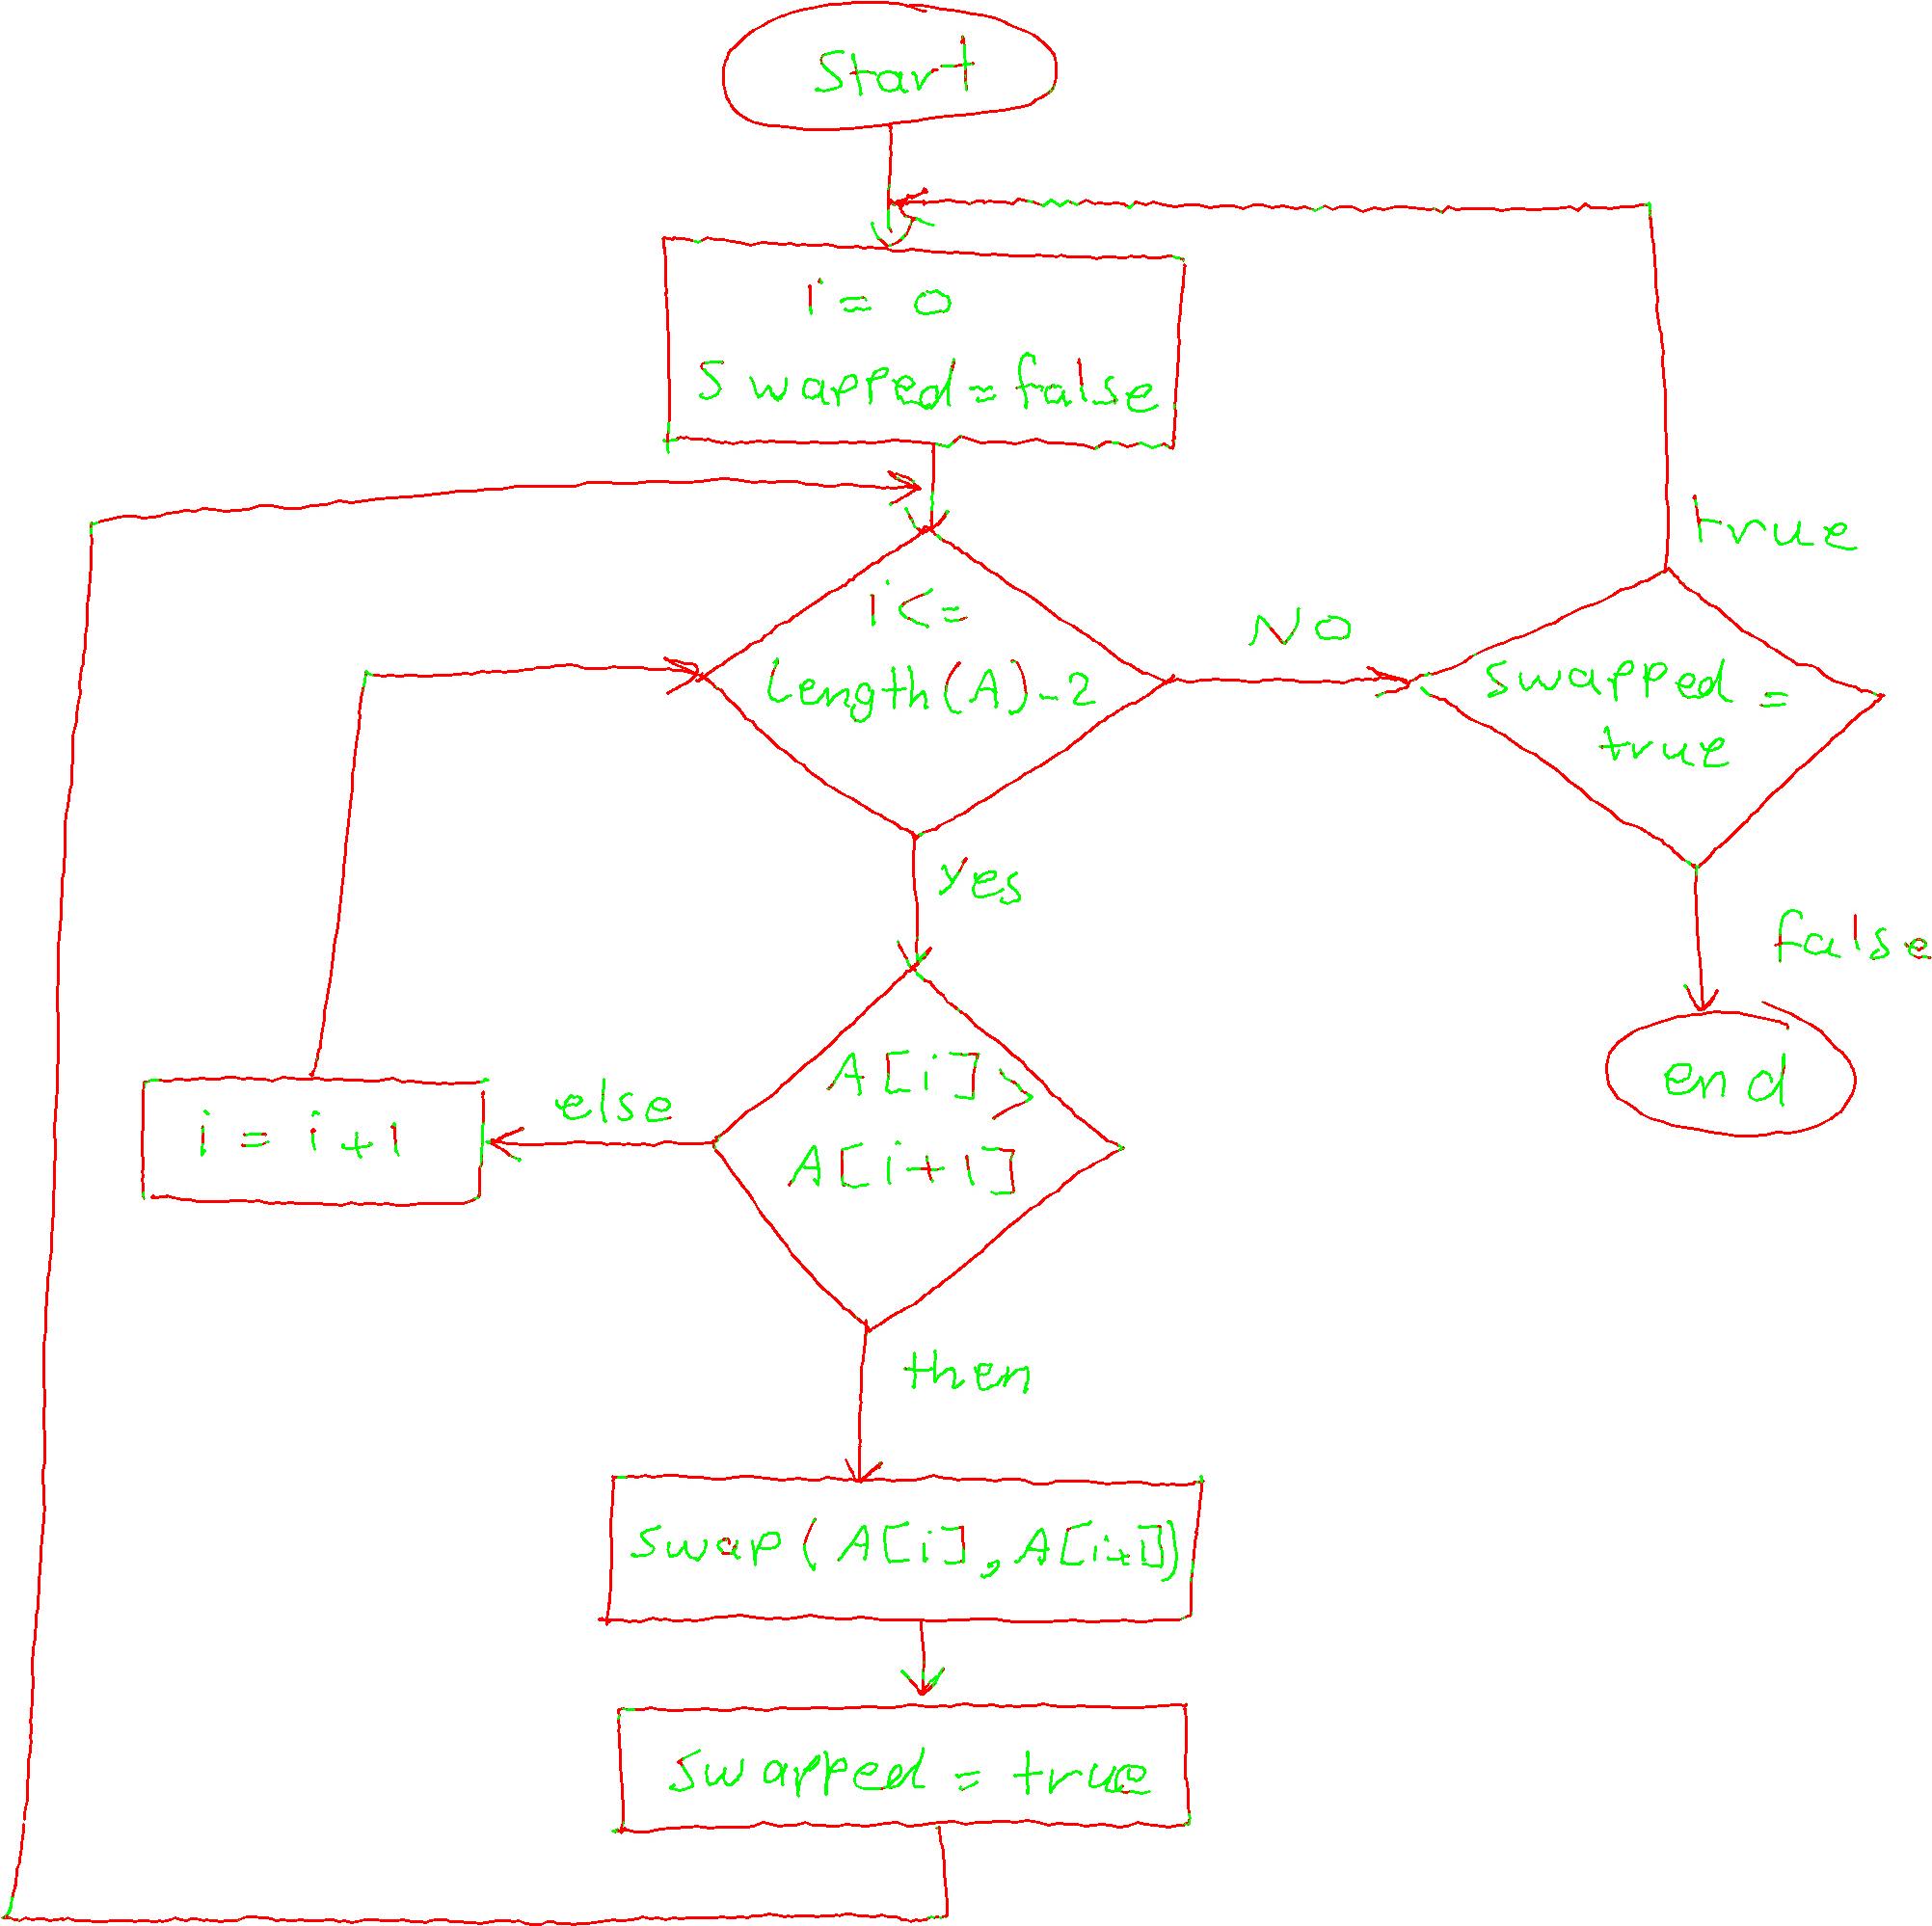 Start
i = 0
Swapped = false
true
i <=
Length(A) - 2
NO
swapped =
true
yes
false
A[i] >
A[i+1]
else
i = i + 1
end
then
swap(A[i], A[i+1])
swapped = true